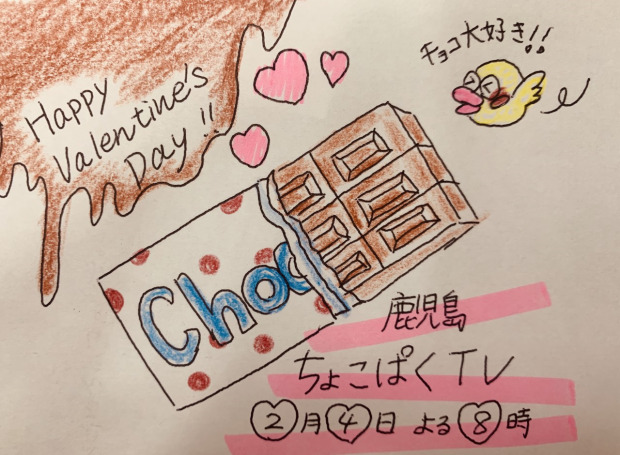 Happy
Valentine's
Day!!
チョコ大好き!!
Choc
鹿児島
ちょこぱくTV
2月4日 よる8時